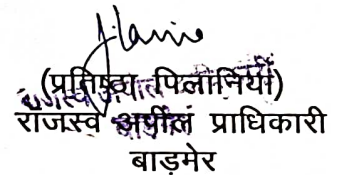 (प्रतिष्ठा पिलानियाँ)
राजस्व अपील प्राधिकारी
बाड़मेर